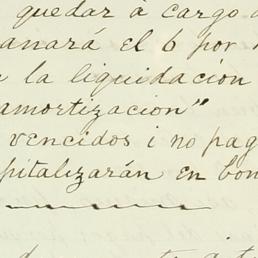 quedar á cargo
anará el 6 por
la liquidacion
amortizacion"
vencidos i no pag
pitalizarán en bon